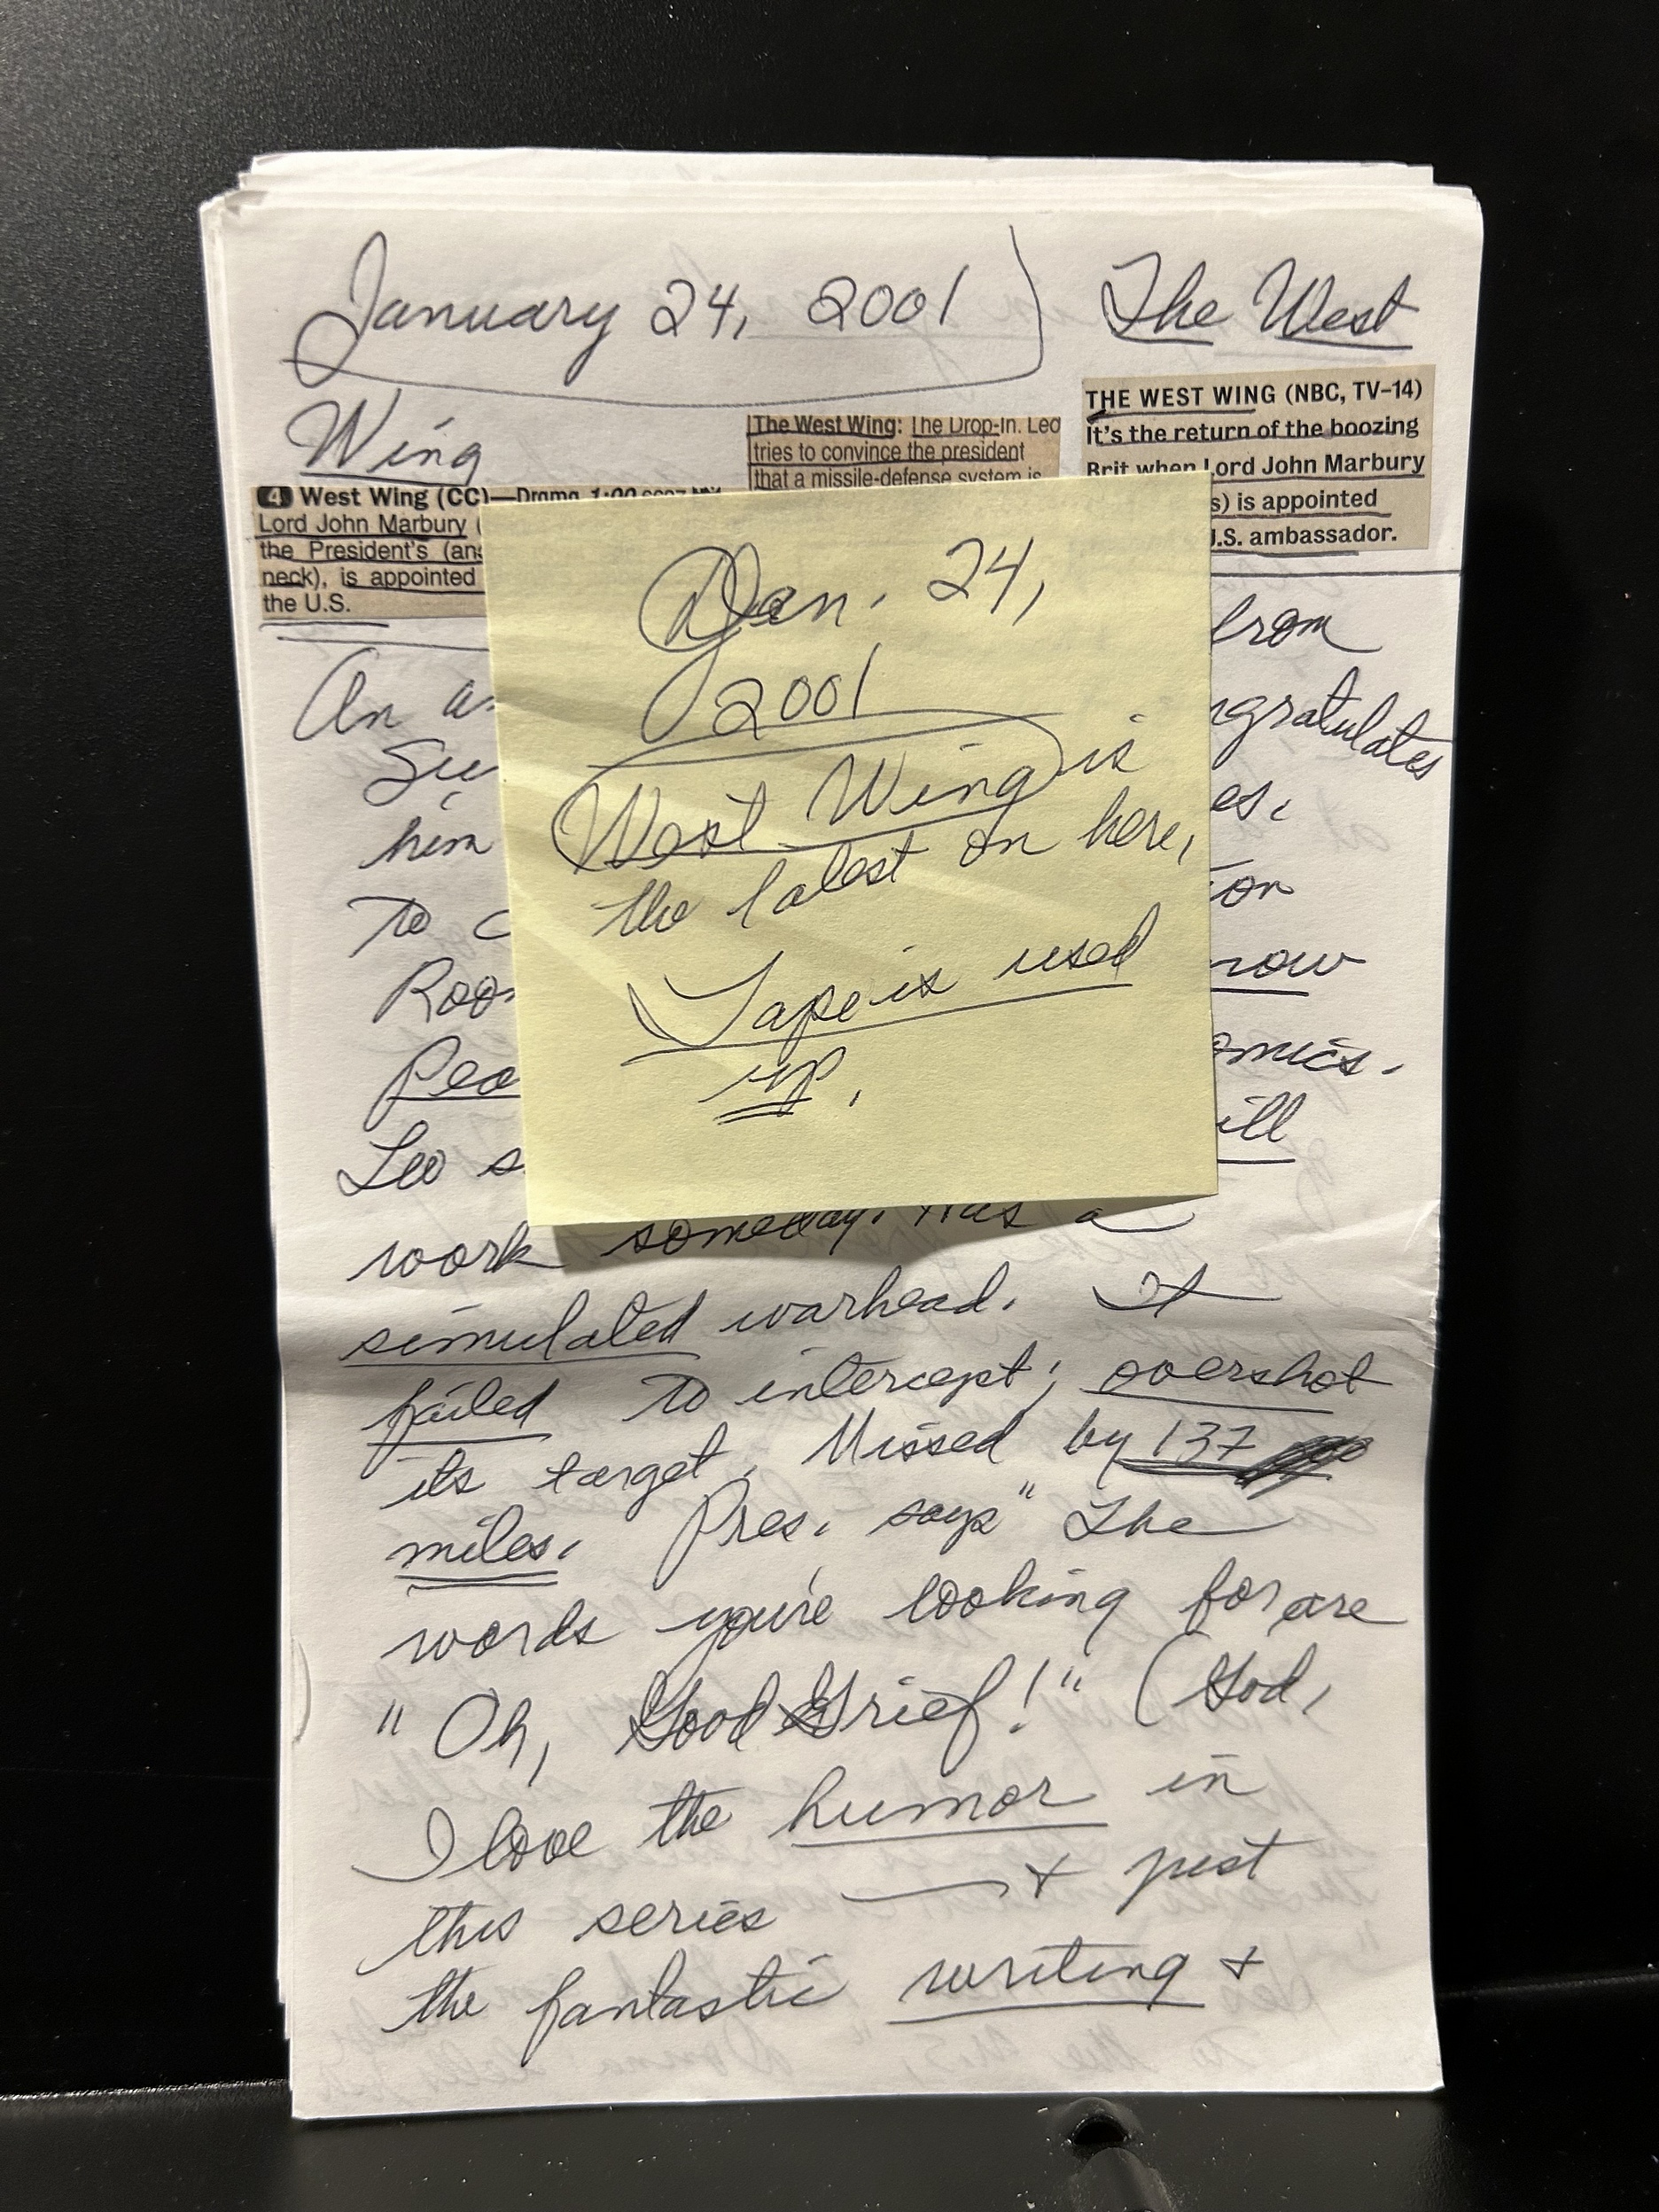 January 24, 2001
The West
Wing
The West Wing: The Drop-In. Leo
tries to convince the president
that a missile-defense system is
THE WEST WING (NBC, TV-14)
It's the return of the boozing
Brit when Lord John Marbury
s) is appointed
U.S. ambassador.
4 West Wing (CC)—Drama 1:00
Lord John Marbury (
the President's (and
neck), is appointed
the U.S.
Jan. 24,
2001
West Wing is
the latest on here,
Tape is used
up.
An
from
ngratulates
him
es.
To
on
now
omics.
Leo s
ill
work someday. Has a
simulated warhead. It
failed to intercept; overshot
its target. Missed by 137
miles. Pres. says "The
words you're looking for are
"Oh, Good Grief!" (God,
I love the humor in
this series — + just
the fantastic writing +